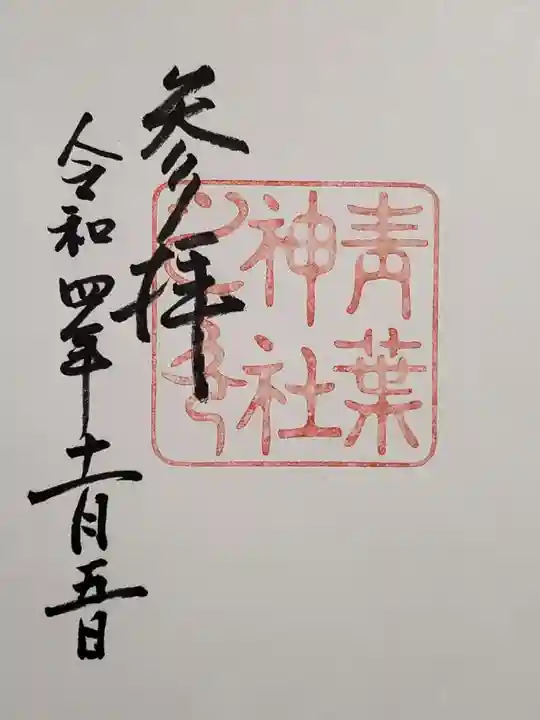 青葉
神社
参拝
令和四年十一月五日